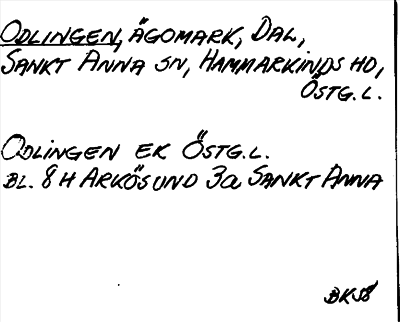 ODLINGEN, ÄGOMARK, DAL,
SANKT ANNA SN, HAMMARKINDS HD,
ÖSTG. L.
ODLINGEN EK ÖSTG. L.
BL. 8 H ARKÖSUND 3a SANKT ANNA
BK58